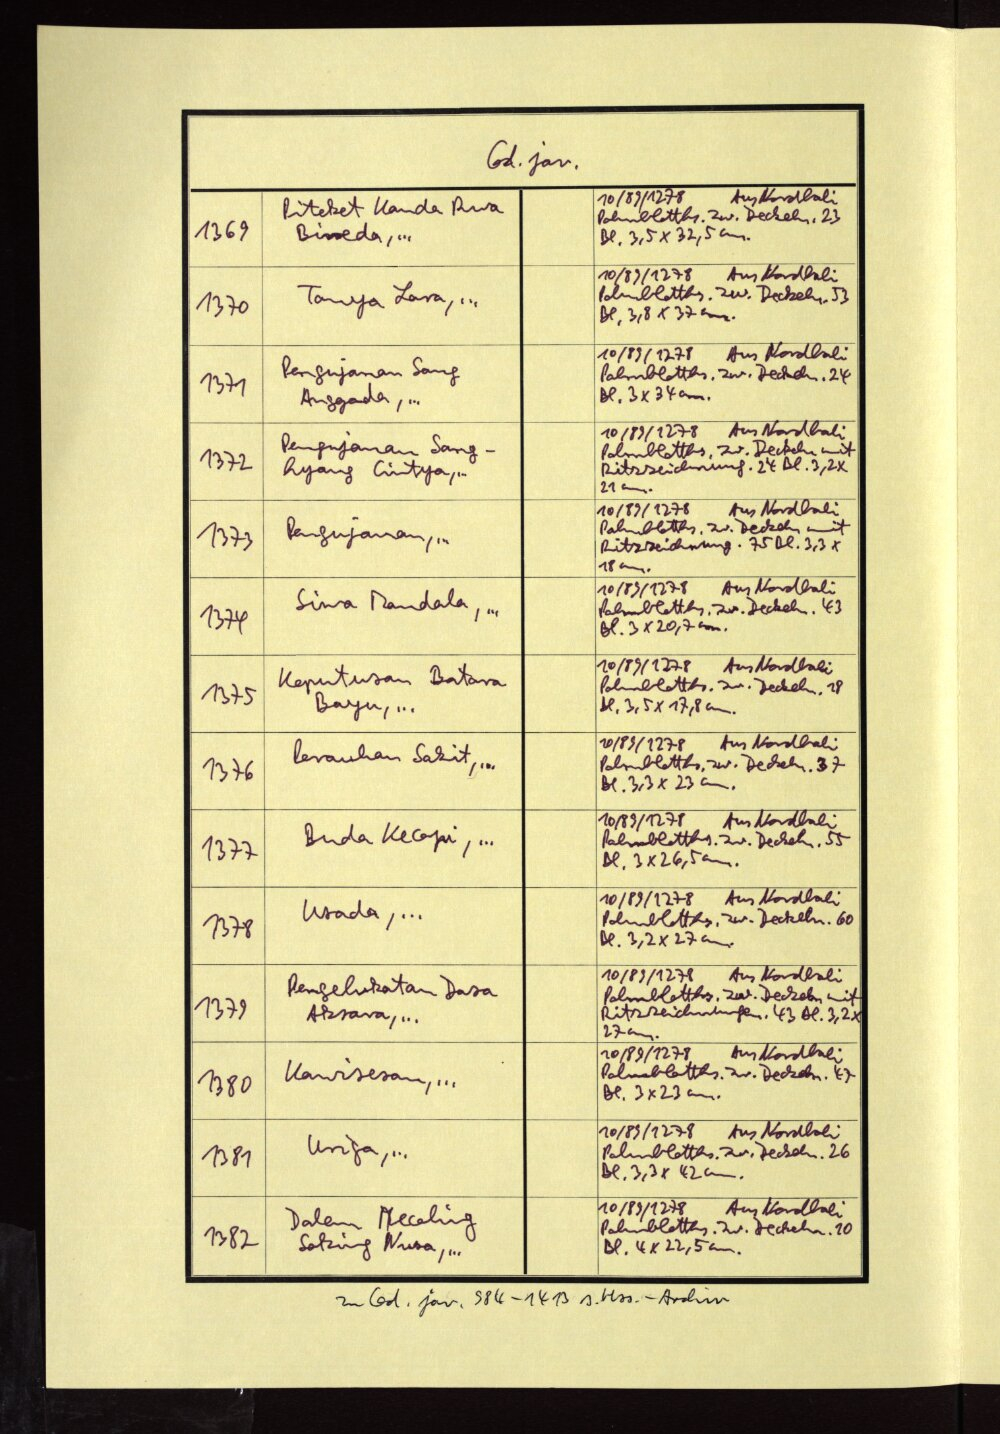 Cod. jav.
1369
Piteket Kanda Rwa
Bineda, ...
10/89/1278 Aus Nordbali
Palmblatths. zw. Deckeln. 23
Bl. 3,5 x 32,5 cm.
1370
Tanya Lara, ...
10/89/1278 Aus Nordbali
Palmblatths. zw. Deckeln. 53
Bl. 3,8 x 37 cm.
1371
Pengujanan Sang
Anggada, ...
10/89/1278 Aus Nordbali
Palmblatths. zw. Deckeln. 24
Bl. 3 x 34 cm.
1372
Pengujanan Sang-
hyang Cintya, ...
10/89/1278 Aus Nordbali
Palmblatths. zw. Deckeln mit
Ritzzeichnung. 24 Bl. 3,2 x
21 cm.
1373
Pengujanan, ...
10/89/1278 Aus Nordbali
Palmblatths. zw. Deckeln mit
Ritzzeichnung. 75 Bl. 3,3 x
18 cm.
1374
Siwa Mandala, ...
10/89/1278 Aus Nordbali
Palmblatths. zw. Deckeln. 43
Bl. 3 x 20,7 cm.
1375
Keputusan Batara
Bayu, ...
10/89/1278 Aus Nordbali
Palmblatths. zw. Deckeln. 18
Bl. 3,5 x 17,8 cm.
1376
Perauhan Sakit, ...
10/89/1278 Aus Nordbali
Palmblatths. zw. Deckeln. 37
Bl. 3,3 x 23 cm.
1377
Buda Kecapi, ...
10/89/1278 Aus Nordbali
Palmblatths. zw. Deckeln. 55
Bl. 3 x 26,5 cm.
1378
Usada, ...
10/89/1278 Aus Nordbali
Palmblatths. zw. Deckeln. 60
Bl. 3,2 x 27 cm.
1379
Pengelukatan Dasa
Aksara, ...
10/89/1278 Aus Nordbali
Palmblatths. zw. Deckeln mit
Ritzzeichnungen. 43 Bl. 3,2 x
27 cm.
1380
Kawisesan, ...
10/89/1278 Aus Nordbali
Palmblatths. zw. Deckeln. 47
Bl. 3 x 23 cm.
1381
Uriga, ...
10/89/1278 Aus Nordbali
Palmblatths. zw. Deckeln. 26
Bl. 3,3 x 42 cm.
1382
Dalem Mecaling
Saking Nusa, ...
10/89/1278 Aus Nordbali
Palmblatths. zw. Deckeln. 10
Bl. 4 x 22,5 cm.
zu Cod. jav. 984-1413 s. Hss.-Archiv